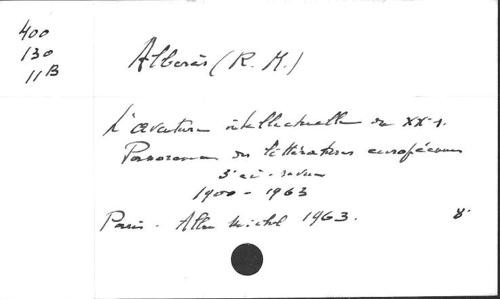 400
130
11B
Alberès (R. M.)
L'aventure intellectuelle du XXe s.
Panorama des littératures européennes
3e éd. revue
1900 - 1963
Paris. Albin Michel 1963. 8°